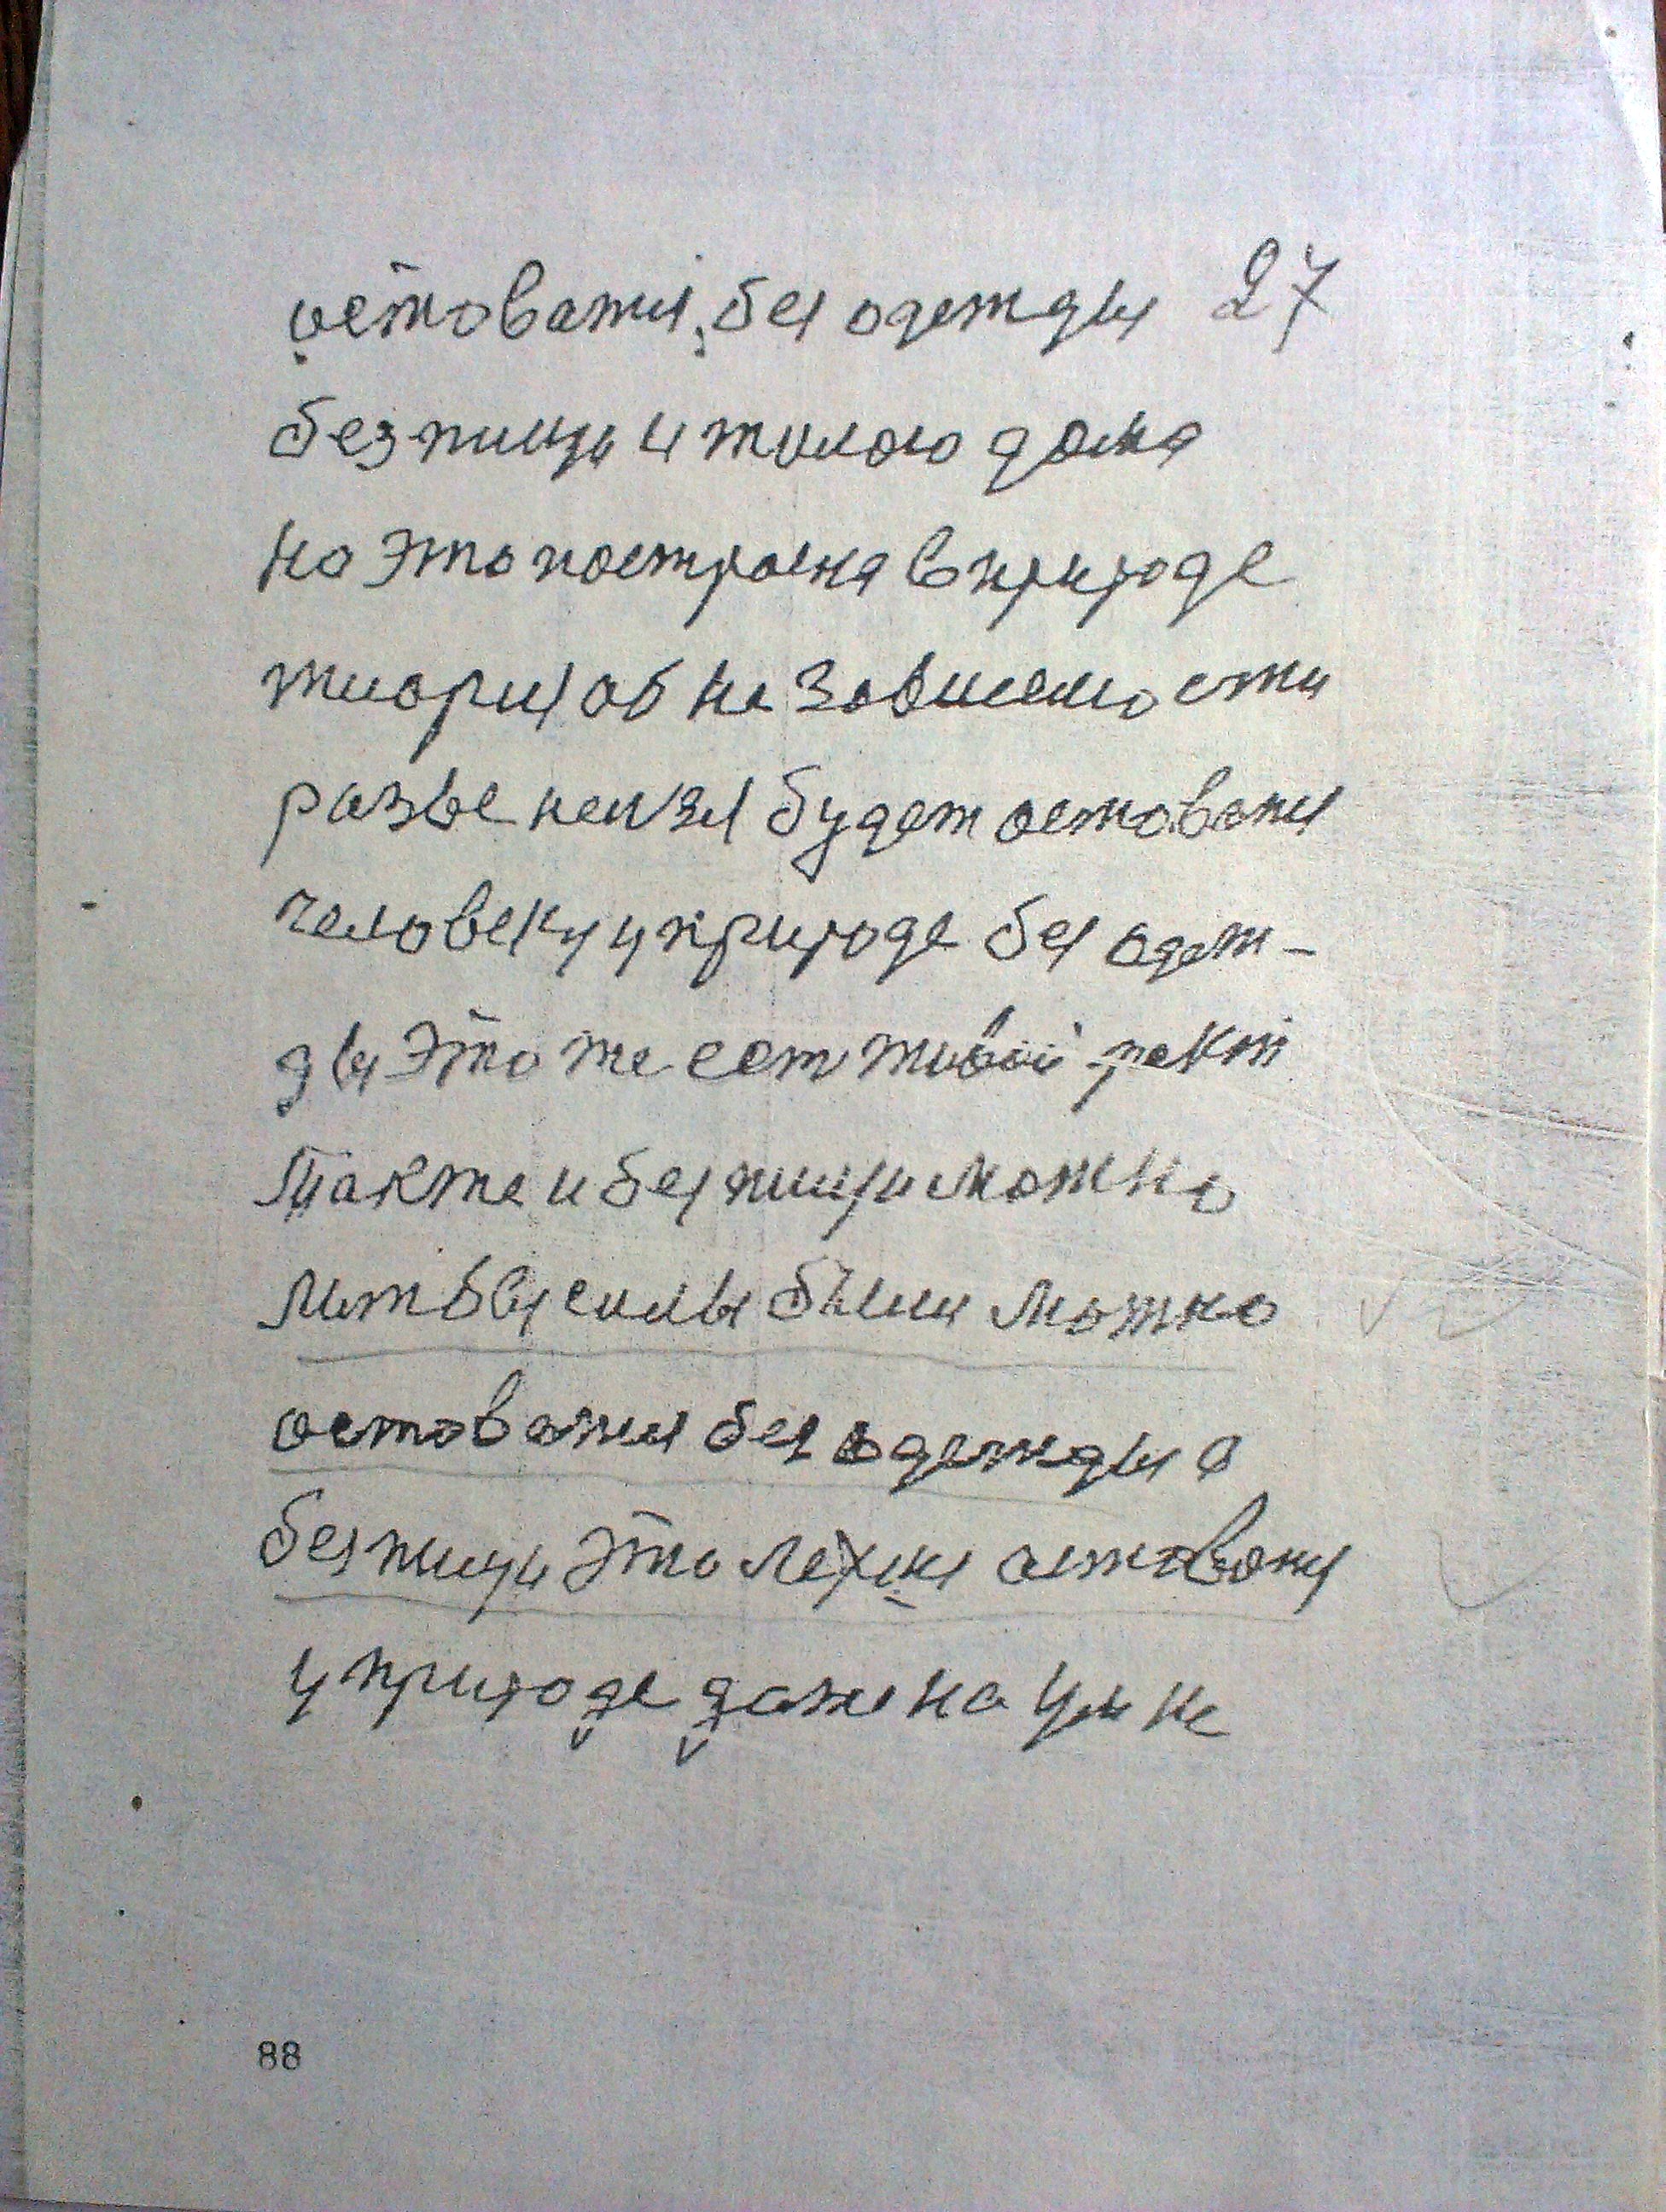 оставатся, без одежды 27
без пищи и жилого дома
на это построена в природе
тиория об не зависемости
разве нельзя будет оставатся
человеку у природе без одеж-
ды это же есть живой факт
также и без пищи можно
были можно
оставатся без одежды а
без пищи это легки оставатся
у природе даже на ум не
88